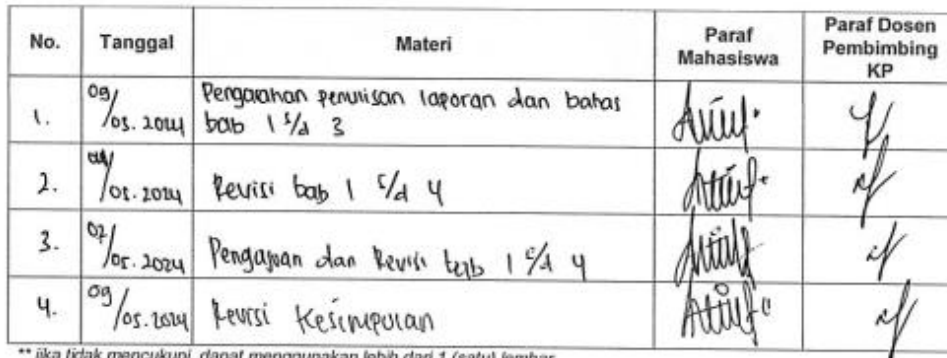 No. Tanggal Materi Paraf Mahasiswa Paraf Dosen Pembimbing KP
1. 09/03.2024 Pengarahan penulisan laporan dan bahas
bab 1 s/d 3
2. /05.2024 Revisi bab 1 s/d 4
3. 07/05.2024 Pengajuan dan Revisi bab 1 s/d 4
4. 09/05.2024 Revisi Kesimpulan
** jika tidak mencukupi, dapat menggunakan lebih dari 1 (satu) lembar